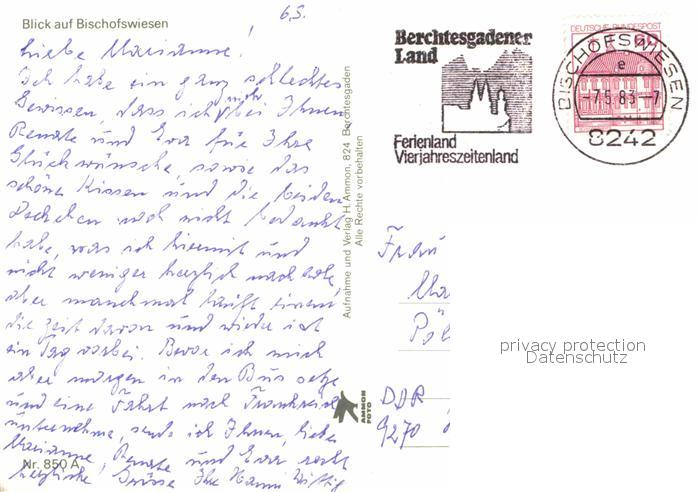 Blick auf Bischofswiesen
6.5.
Liebe Marianne!
Ich habe ein ganz schlechtes
Gewissen, dass ich mich bei Ihnen
Renate und Eva für Ihre
Glückwünsche, sowie das
schöne Kissen und die beiden
noch nicht bedankt
habe, was ich hiermit und
nicht weniger herzlich nachhole,
aber manchmal läuft einem
die Zeit davon und wieder ist
ein Tag vorbei. Bevor ich mich
aber morgen in den Bus setze
und eine Fahrt nach Frankreich
unternehme, sende ich Ihnen, liebe
Marianne, Renate und Eva recht
herzliche Grüsse Ihre Hanni Wittig
Nr. 850 A
Aufnahme und Verlag H. Ammon, 824 Berchtesgaden
Alle Rechte vorbehalten
AMMON
FOTO
Berchtesgadener
Land
Ferienland
Vierjahreszeitenland
DEUTSCHE BUNDESPOST
BISCHOFSWIESEN
e
-7.5.83--7
8242
Frau
Ma
Pöl
DDR
9270
privacy protection
Datenschutz